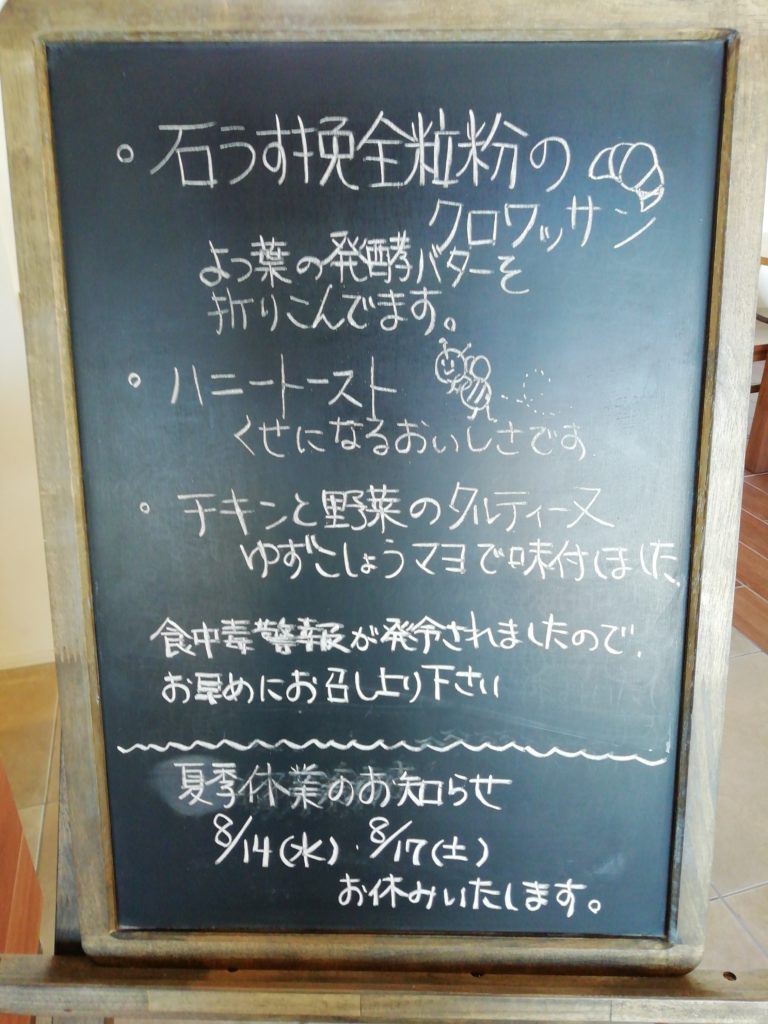 。石うす挽全粒粉の
クロワッサン
よつ葉の発酵バターを
折りこんでます。
。ハニートースト
くせになるおいしさです
。チキンと野菜のタルティーヌ
ゆずこしょうマヨで味付しました。
食中毒警報が発令されましたので、
お早めにお召し上り下さい
夏季休業のお知らせ
8/14(水)・8/17(土)
お休みいたします。